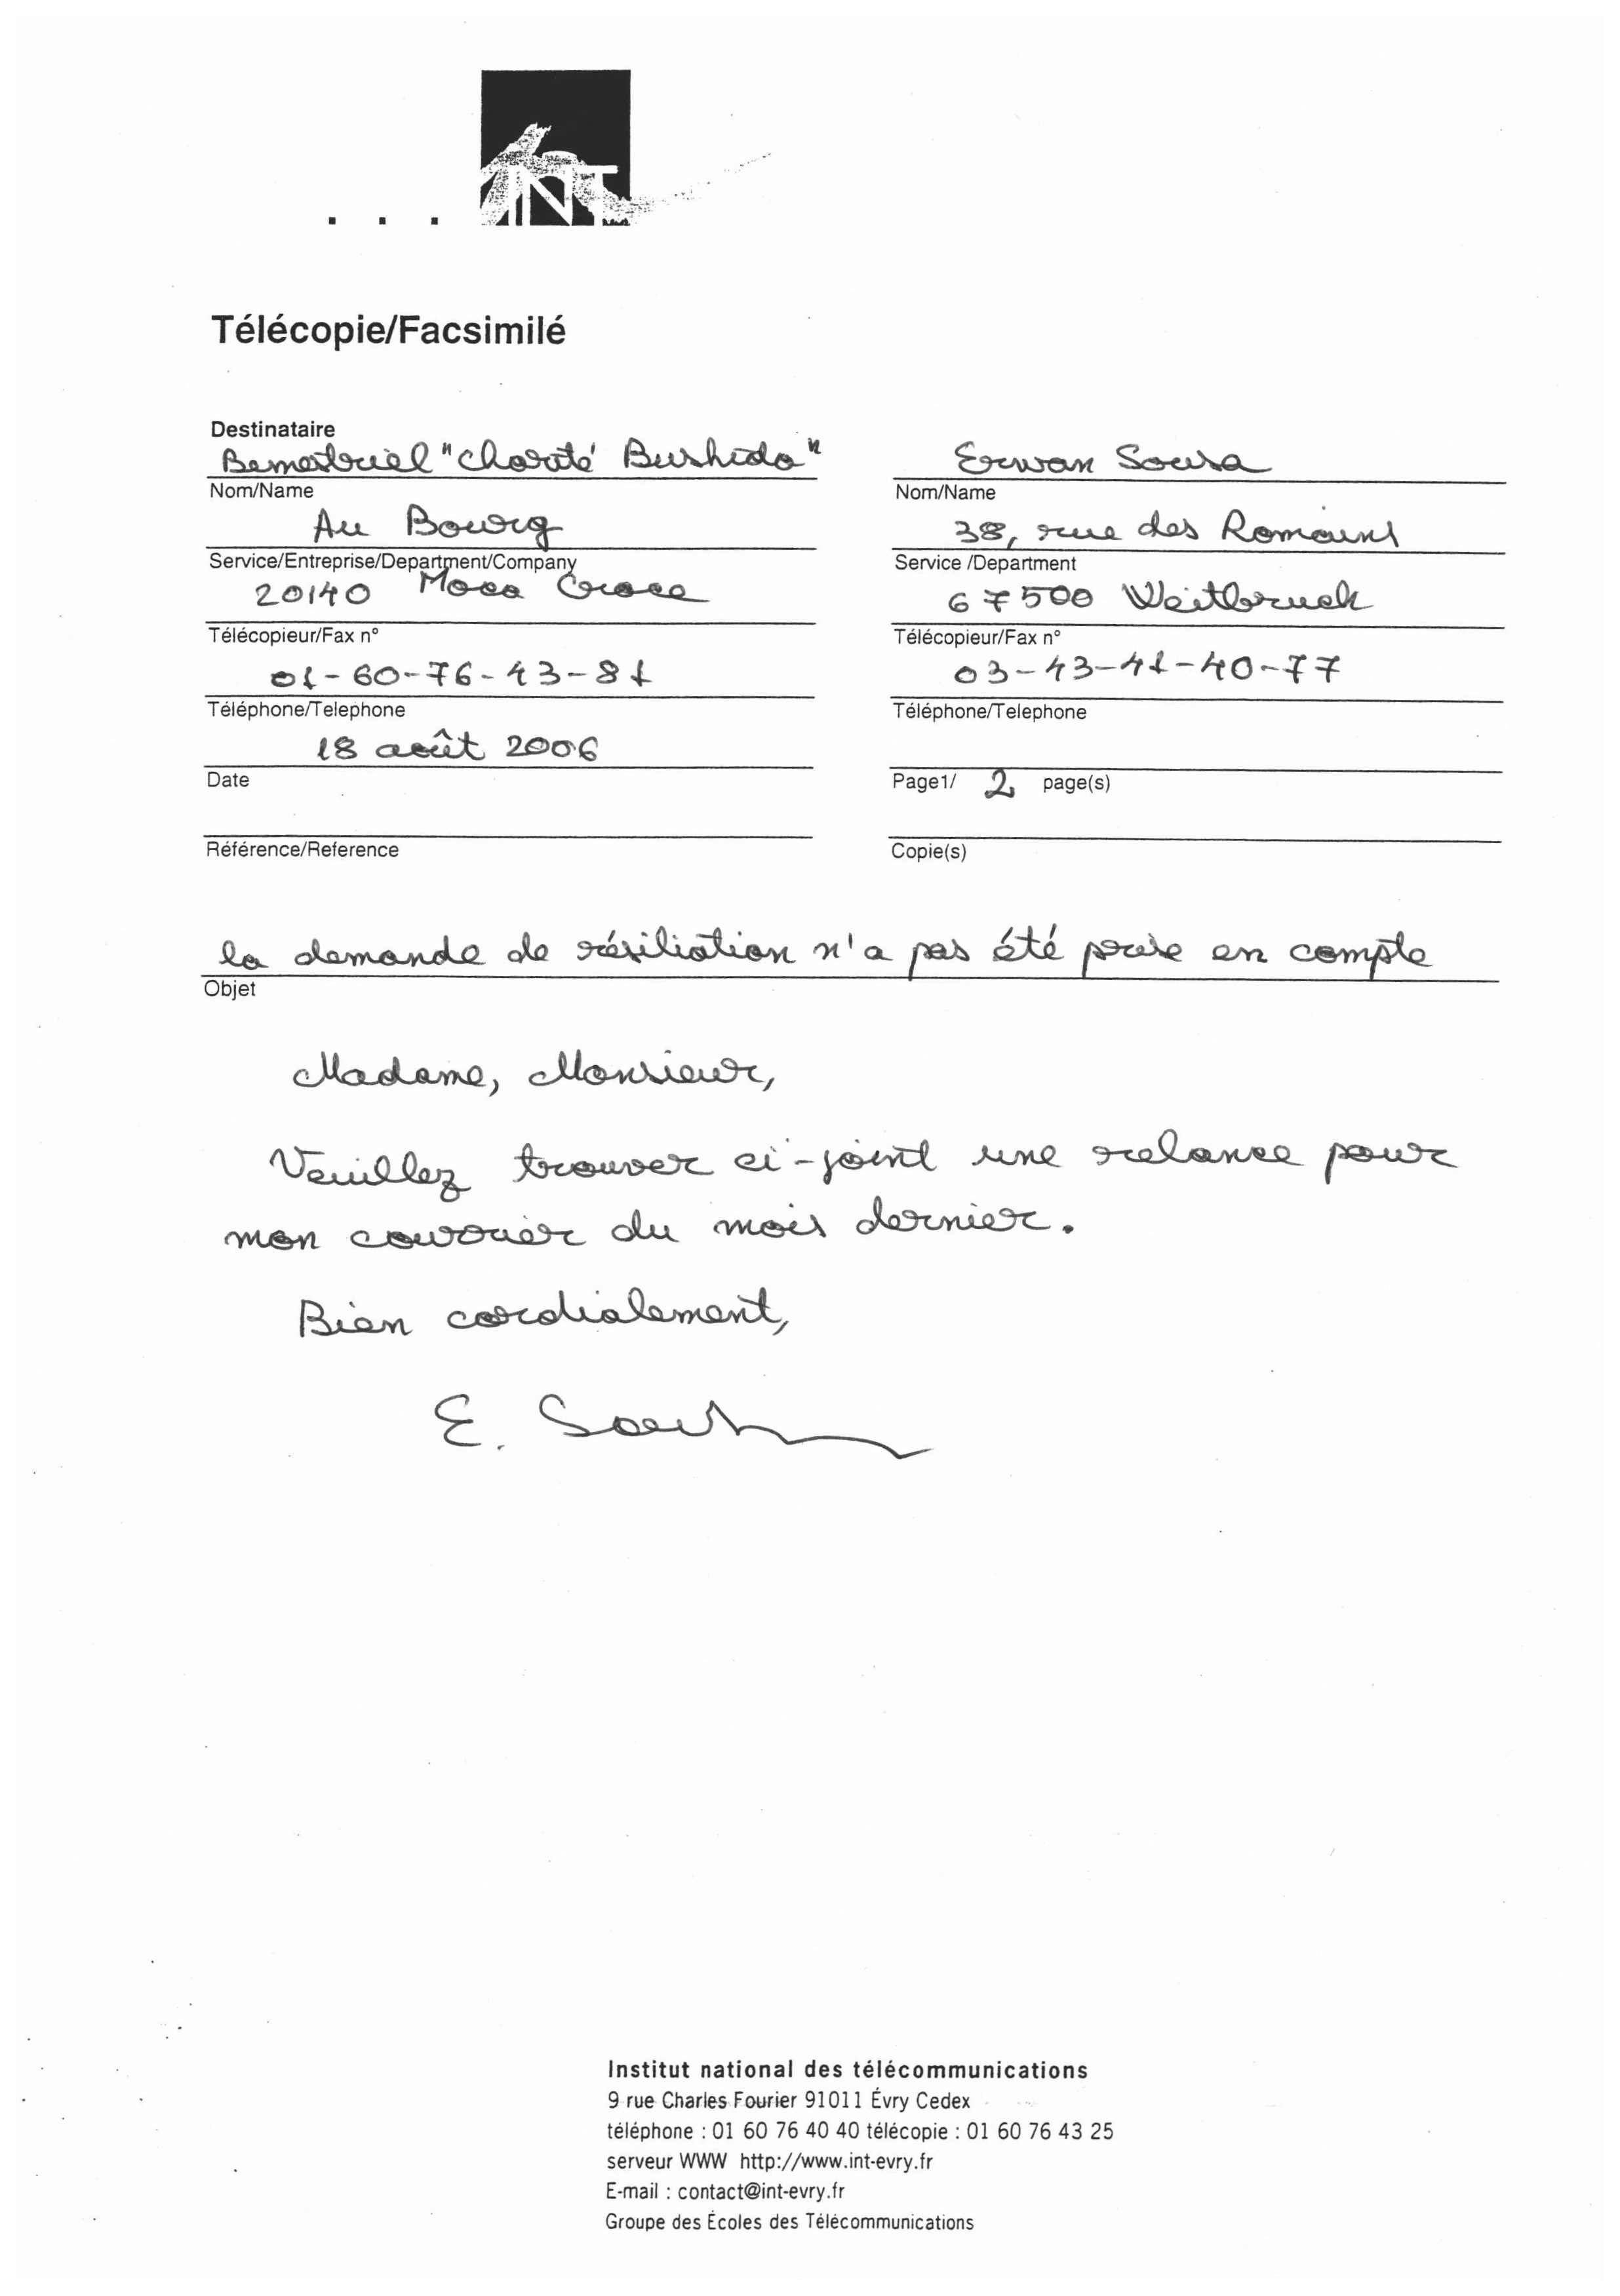 INT
Télécopie/Facsimilé
Destinataire
Bimestriel "Charité Bushido"
Nom/Name
Au Bourg
Service/Entreprise/Department/Company
20140 Moca Croce
Télécopieur/Fax n°
01-60-76-43-81
Téléphone/Telephone
18 août 2006
Date
Référence/Reference
Erwan Sousa
Nom/Name
38, rue des Romains
Service /Department
67500 Weitbruch
Télécopieur/Fax n°
03-43-41-40-77
Téléphone/Telephone
Page1/ 2 page(s)
Copie(s)
la demande de résiliation n'a pas été prise en compte
Objet
Madame, Monsieur,
Veuillez trouver ci-joint une relance pour
mon courrier du mois dernier.
Bien cordialement,
E. Sousa
Institut national des télécommunications
9 rue Charles Fourier 91011 Évry Cedex
téléphone : 01 60 76 40 40 télécopie : 01 60 76 43 25
serveur WWW http://www.int-evry.fr
E-mail : contact@int-evry.fr
Groupe des Écoles des Télécommunications